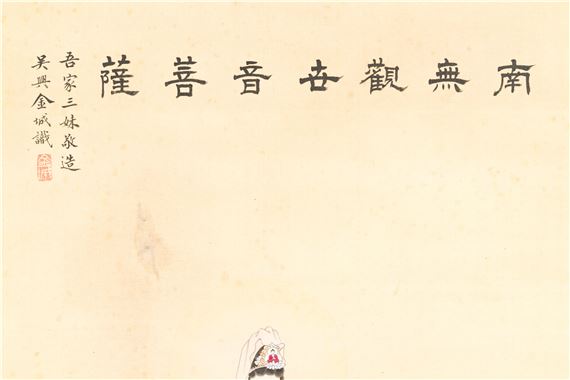 南無觀世音菩薩
吾家三妹敬造
吳興金城識